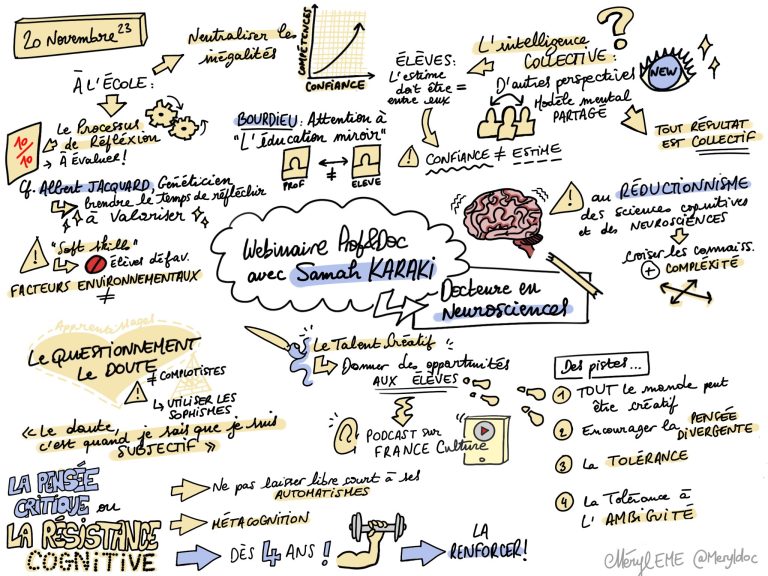 20 Novembre 23
Neutraliser les
inégalités
COMPÉTENCES
CONFIANCE
À L'ÉCOLE :
10/10
Le Processus
de Réflexion
→ À Évaluer !
Cf. Albert JACQUARD, Généticien
Prendre le temps de réfléchir
à Valoriser
"Soft Skills"
Élives défav.
FACTEURS ENVIRONNEMENTAUX
≠
BOURDIEU : Attention à
"L'éducation miroir"
PROF
≠
ELEVE
ÉLÈVES :
L'estime
doit être =
entre eux
CONFIANCE ≠ ESTIME
L'intelligence
COLLECTIVE :
?
D'autres perspectives
Modèle mental
PARTAGÉ
NEW
TOUT RÉSULTAT
EST COLLECTIF
au RÉDUCTIONNISME
des sciences cognitives
et des NEUROSCIENCES
Croiser les connaiss.
+ COMPLÉXITÉ
Webinaire Prof&Doc
avec Samah KARAKI
Docteure en
Neurosciences
Apprentissages
LE QUESTIONNEMENT
LE DOUTE
≠ COMPLOTISTES
↳ UTILISER LES
SOPHISMES
« Le doute,
c'est quand je sais que je suis
SUBJECTIF »
Le Talent Créatif
Donner des opportunités
AUX ÉLÈVES
PODCAST sur
FRANCE Culture
Des pistes...
1 TOUT le monde peut
être créatif
2 Encourager la PENSÉE
DIVERGENTE
3 La TOLÉRANCE
4 La Tolérance à
L'AMBIGUITÉ
LA PENSÉE
CRITIQUE ou
LA RÉSISTANCE
COGNITIVE
Ne pas laisser libre court à ses
AUTOMATISMES
MÉTACOGNITION
DÈS 4 ANS !
LA
RENFORCER !
MérylEME @Meryldoc